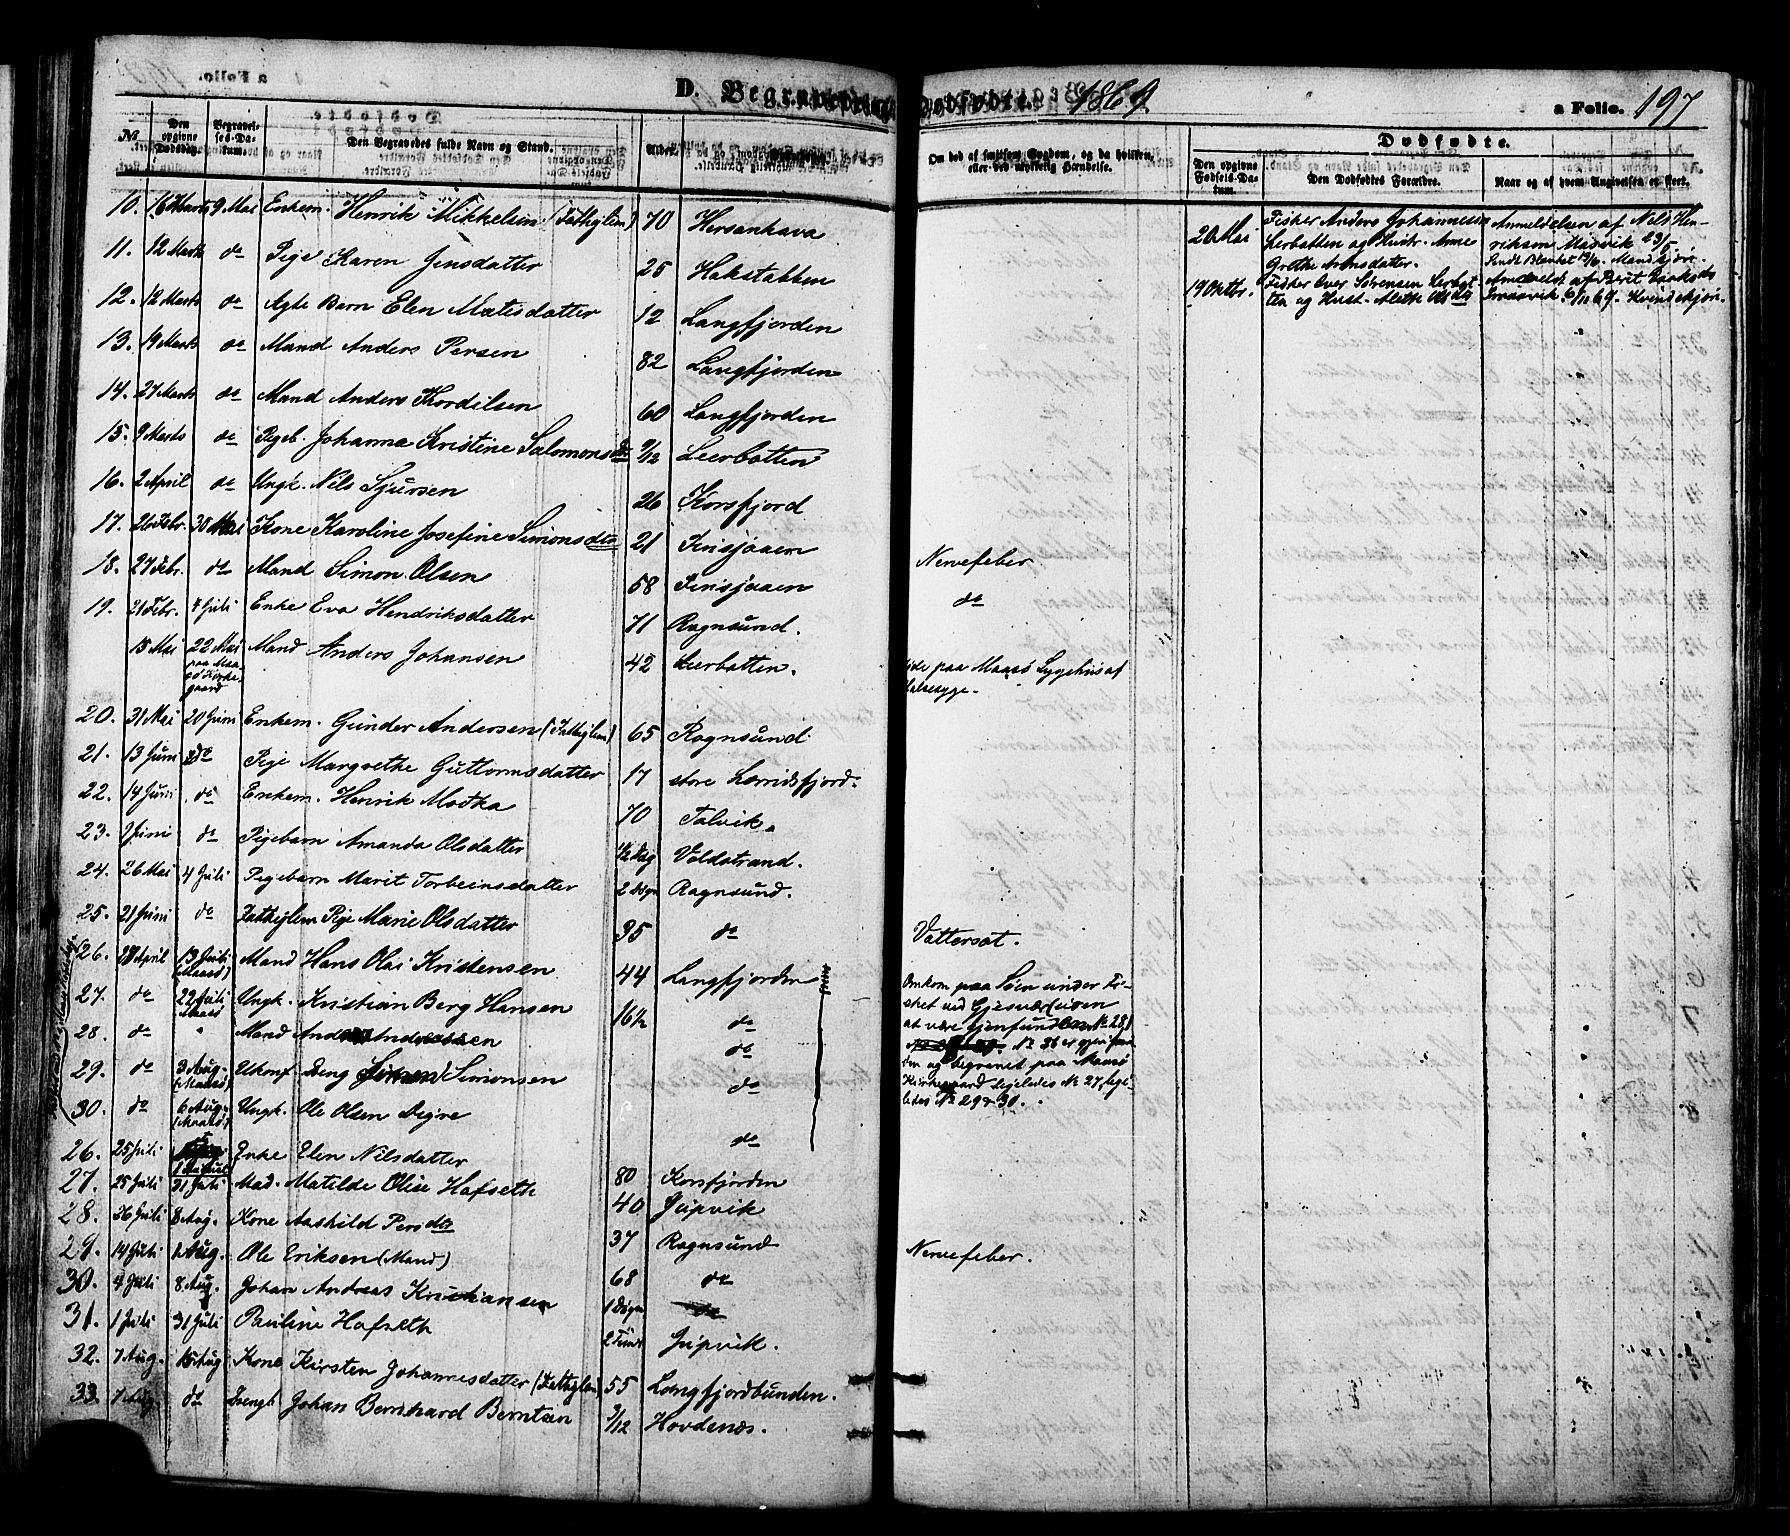 D. Begravede Dødfødte. 1869. a Folio. 197
No. Den opgivne Dødsdag. Begravelses-Datum. Den Begravedes fulde Navn og Stand. Alder.
Om død af smitsom Sygdom, og da hvilken, eller ved ulykkelig Hændelse.
Dødfødte.
Den opgivne Fødsels-Datum. Den Dødfødtes Forældre. Naar og af hvem Angivelsen er skeet.
10. 16 Marts 9 Mai Enkem. Henrik Mikkelsen (Fattiglem) 70 Hersenhava
11. 12 Marts do Pige Karen Jensdatter 25 Hakstabben
12. 12 Marts do Ægte Barn Elen Matisdatter 12 Langfjorden
13. 19 Marts do Mand Anders Persen 82 Langfjorden
14. 27 Marts do Mand Anders Kordilsen 60 Langfjorden
15. 9 Marts do Pigeb. Johanna Kristine Salomonsdtr 9/12 Leerbotten
16. 2 April do Ungk. Nils Sjursen 26 Korsfjord
17. 26 Febr. 30 Mai Kone Karoline Josefine Simonsdtr 21 Kinsjøaen Nervefeber
18. 27 Febr. do Mand Simon Olsen 58 Kinsjøaen do
19. 21 Febr. 4 Juli Enke Eva Hendriksdatter 71 Rognsund.
15 Mai 22 Mai paa Maasø Kirkegaard Mand Anders Johansen 42 Leerbotten. Døde paa Maasø Sygehus af Halssyge.
20. 31 Mai 20 Juni Enkem. Gunder Andersen (Fattiglem) 65 Rognsund
21. 13 Juni do Pige Margrethe Guttormsdatter 17 store Lerridsfjord.
22. 14 Juni do Enkem. Henrik Madka 70 Talvik.
23. 9 Juni do Pigebarn Amanda Olsdatter 1/2 Dag Voldstrand.
24. 26 Mai 4 Juli Pigebarn Marit Torbeinsdatter 2 Døgn Rognsund.
25. 21 Juni do Fattiglem Pige Marie Olsdatter 35 do Vattersot.
26. 28 April 13 Juli (Maasø) Mand Hans Olai Kristensen 44 Langfjorden
27. do 22 Juli Maasø Ungk. Kristian Berg Hansen 16½ do
28. do " Mand Anders Andreassen do
29. do 3 Aug. (Maasø) Ukonf. Dreng Simonsen do
30. do 6 Aug. (Maasø) Ungk. Ole Olsen Degre do
Omkom paa Søen under Fi-
sket ved Gjesvær (uden
at være gjenfunden No 28)
No 26 er gjenfun-
den og begravet paa Maasø
Kirkegaard ligeledes No 27, lige-
ledes No 29 & 30.
26. 25 Juli 1 August Enke Elen Nilsdatter 80 Korsfjorden
27. 25 Juli 31 Juli Mad. Matilde Olise Hafseth 40 Jupvik
28. 26 Juli 8 Aug. Kone Aashild Persdtr 37 Rognsund Nervefeber.
29. 14 Juli 1 Aug. Ole Eriksen (Mand) 68 do
30. 4 Juli 8 Aug. Johan Andreas Kristiansen 1 Døgn do
31. 1 Juli 31 Juli Pauline Hafseth 2 Timer Jupvik.
32. 7 Aug. 15 Aug Kone Kirsten Johannesdatter (Fattiglem) 55 Langfjordbunden.
33. 1 Aug. do Drengb. Johan Bernhard Berntsen 3/12 Hovdenæs.
20 Mai Fisker Anders Johannesen Lerbotten og Hustr. Anne Grethe Aronsdatter. Anmeldelsen af Nels Henrikson Madvik 23/5 Sendt Blanket 10/6. Mandkjøn.
19 Oktbr. Fisker Iver Sørensen Lerbotten og Hust. Alette Olsdtr Anmeldt af Berit Isaksdtr Smaavik 6/11 69. Kvindekjøn.